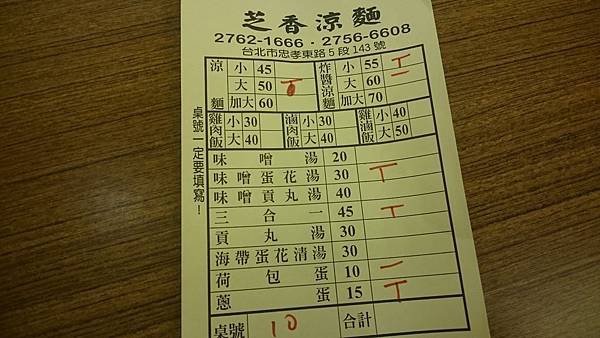 芝香涼麵
2762-1666・2756-6608
台北市忠孝東路5段143號
桌號一定要填寫！
涼麵 小 45
大 50
加大 60
炸醬涼麵 小 55 丅
大 60 一
加大 70
雞肉飯 小 30
大 40
滷肉飯 小 30
大 40
雞滷飯 小 40
大 50
味噌湯 20
味噌蛋花湯 30 丅
味噌貢丸湯 40
三合一 45 丅
貢丸湯 30
海帶蛋花清湯 30
荷包蛋 10 一
蔥蛋 15 丅
桌號 10 合計